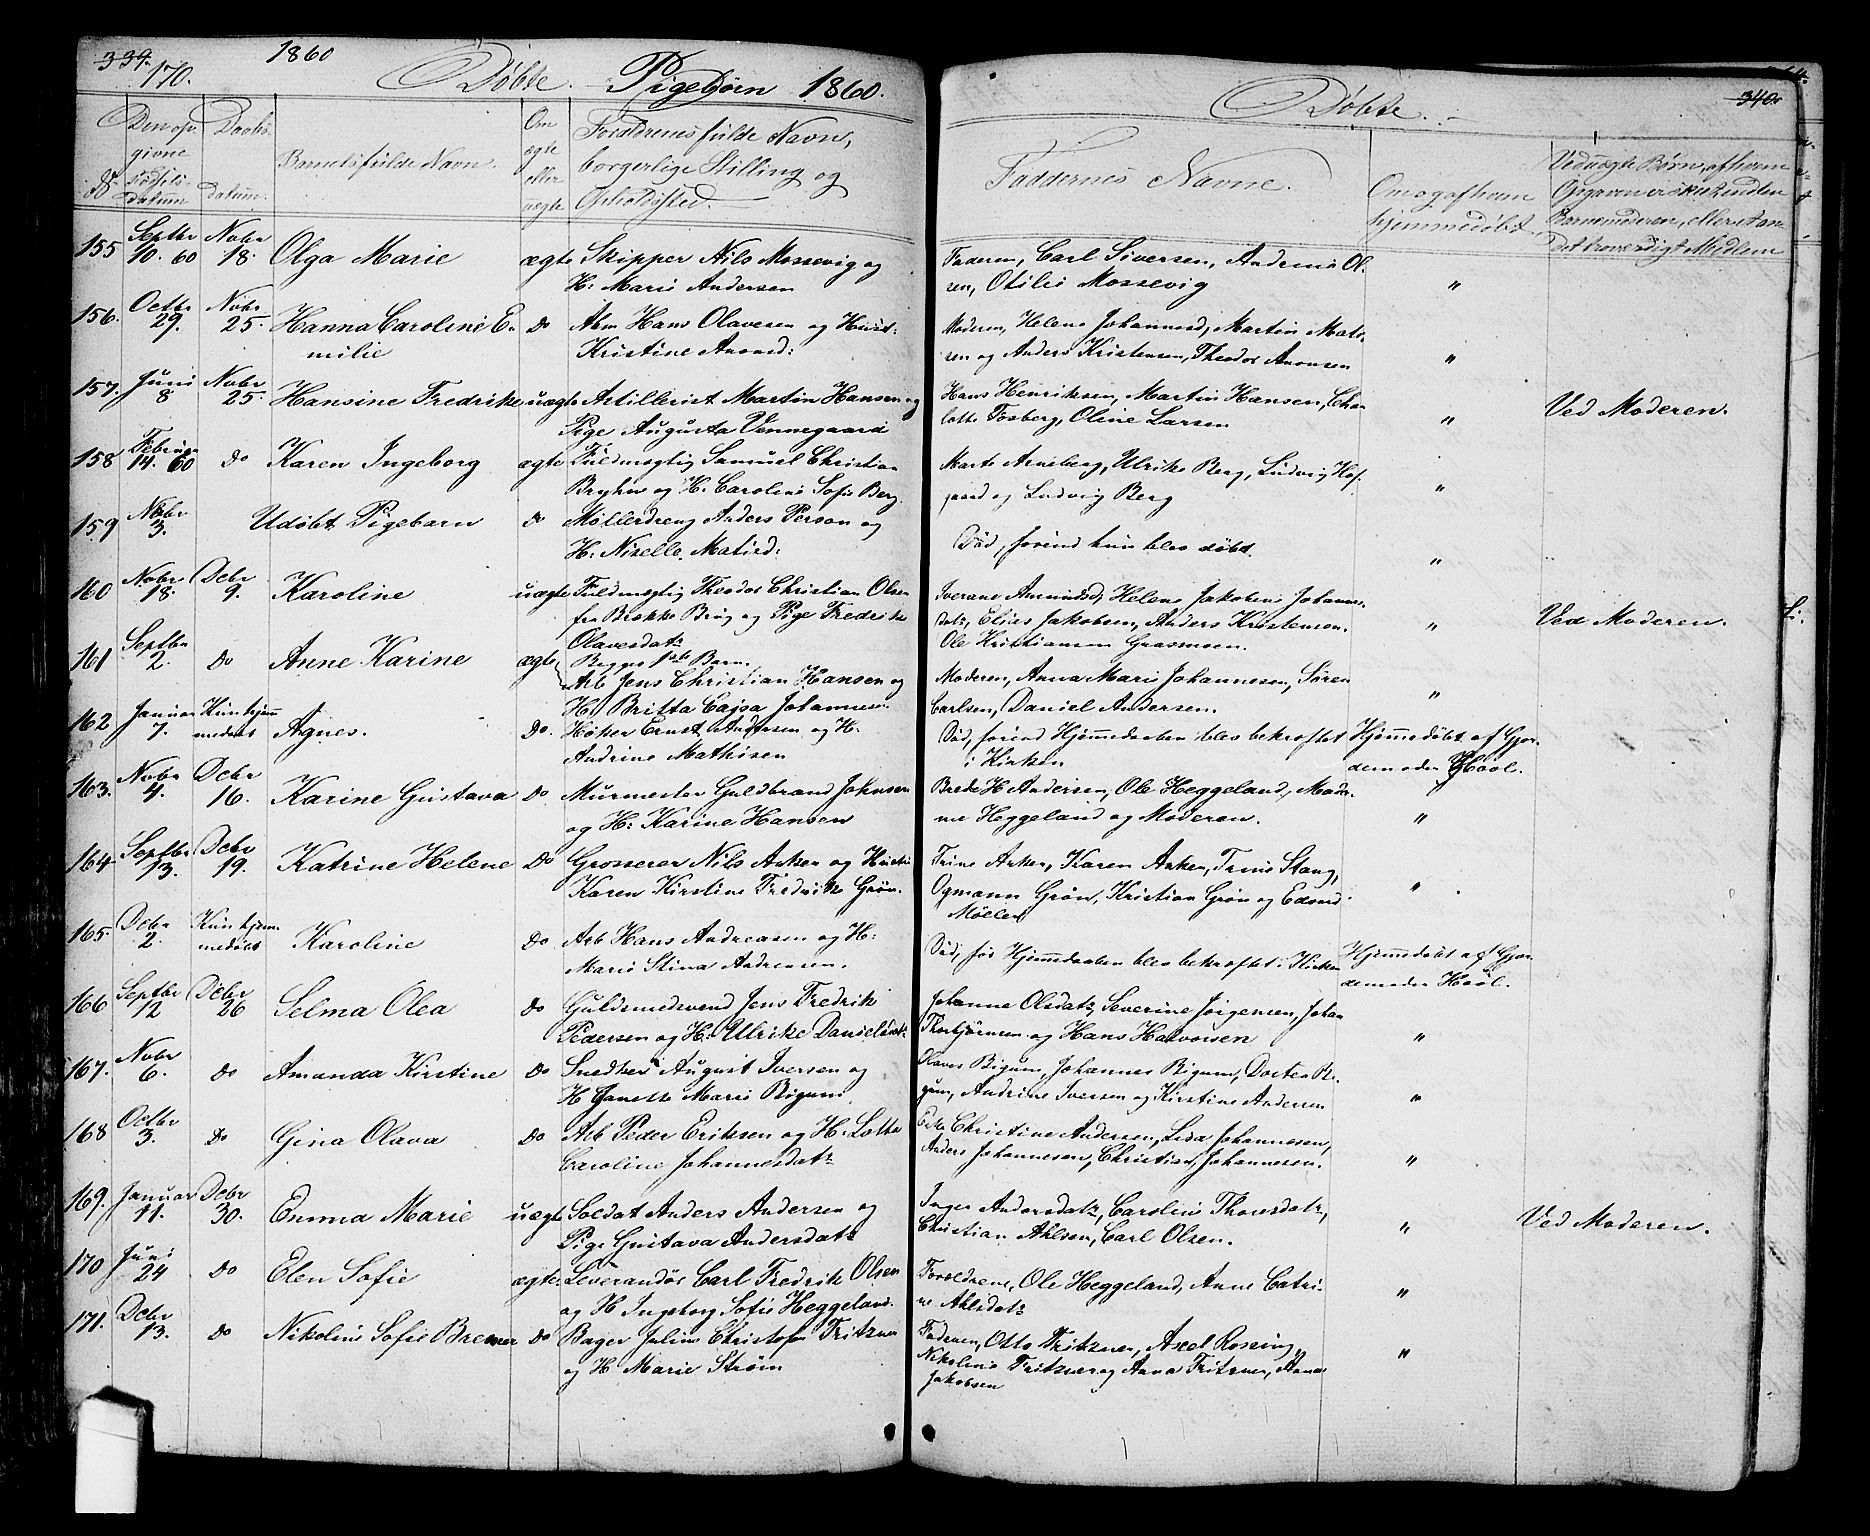 339. 1860
170. Døbte. Pigebørn 1860.
Døbte. 340.
No. Den opgivne Fødselsdatum Daabsdatum. Barnets fulde Navn. Om ægte eller uægte Forældrenes fulde Navn, borgerlige Stilling og Opholdssted.
Faddernes Navne. Om og af hvem hjemmedøbt. Ved uægte Børn, af hvem Opgaven er skeet, enten
Barnemoderen, eller
Det troværdigt Medlem
155 Septbr 10. 60 Novbr 18. Olga Marie ægte Skipper Nils Mossevig og
H: Marie Andersen
Faderen, Carl Siversen, Andrine Ol-
sen, Otilie Mossevig "
156. Octbr 29. Nvbr 25. Hanna Caroline E- Do Arb Hans Olavesen og Hust:
milie Kristine
Moderen, Helene Johannesd, Martin Mati-
sen og Anders Kristensen, Theodor "
157. Juni 8 Nvbr 25. Hansine Fredrike uægte Artillerist Martin Hansen og
Pige Augusta Vennegaard
Hans Henriksen, Martin Hansen, Cha-
lotte Fosberg, Oline Larsen " Ved Moderen.
158 Februar 14. 60 Do Karen Ingeborg ægte Fuldmægtig Samuel Christian
Bryhn og H: Caroline Sofie Berg.
Marte Arneberg, Ulrike Berg, Ludvig Hof-
gaard og Ludvig Berg "
159 Nvbr 3. Udøbt Pigebarn Do Møllerdreng Anders Person og
H: Nixelle Matisd:
Død, forend hun blev døbt. "
160 Nvbr 18. Debr 9. Karoline uægte Fuldmægtig Theodor Christian Olsen
fra Brække Brug og Pige Fredrike
Olavesdatr
Begges 1ste Barn.
Iverane Amundsd, Helene Jakobine Johannes-
datr, Elias Jakobsen, Anders Kristensen.
Ole Kristiansen Grasmoen. " Ved Moderen.
161 Septbr 2. Do Anne Karine ægte Arb Jens Christian Hansen og
H: Britta Cajsa Johannesen
Moderen, Anna Marie Johannesen, Søren
Carlsen, Daniel Andersen. "
162 Januar 7. Kun hjem medøbt Agnes. Do. Høker Ernst Andersen og H:
Andrine Mathisen
Død, forend Hjemedaaben blev bekræftet
i Kirken
Hjemedøbt af Gjor-
demoder Hoøl.
163. Nvbr 4. Debr 16. Karine Gustava Do. Murmester Guldbrand Johnsen
og H: Karine Hansen
Brede H Andersen, Ole Heggeland, Mada-
me Heggeland og Moderen. "
164 Septbr 13. Debr 19. Katrine Helene Do Grosserer Nils Anker og Hustru
Karen Kirstine Fredrike Grøn.
Trine Anker, Karen Anker, Trine Stang,
Ogmann Grøn, Kristian Grøn og Edvard
Møller "
165. Debr 2. Kun hjem medøbt Karoline Do Arb Hans Andreasen og H:
Marie Stina Andreasen.
Død, før Hjemedaaben blev bekræftet i Kirken
Hjemedøbt af Gjor-
demoder Hoøl.
166 Septbr 12 Debr 26 Selma Olea Do Guldsmedsvend Jens Fredrik
Pedersen og H: Ulrike Danielsdatr
Johanne Olsdatr, Severine Jørgensen, Johan
Thorbjørnsen og Hans Halvorsen "
167. Nvbr 6. Do Amanda Kirstine Do Snedker August Iversen og
H Janette Marie Bigum
Olaves Bigum, Johannes Bigum, Dortea Bi-
gum, Andrine Iversen og Kirstine Andersen "
168 Octbr 3. Do Gina Olava Do Arb Peder Eriksen og H: Lotte
Caroline Johannesdatr
Christine Andersen, Lisa Johannesen,
Anders Johannesen, Christian Johannesen. "
169. Januar 11. Debr 30. Emma Marie uægte Soldat Anders Andersen og
Pige Gustava Andersdatr
Inger Andersdatr, Caroline Thorsdatr,
Christian Ahlsen, Carl Olsen. " Ved Moderen.
170 Juni 24 Do Elen Sofie ægte Leverandør Carl Fredrik Olsen
og H Ingeborg Sofie Heggeland.
Forældrene, Ole Heggeland, Anne Catri-
ne Ahlsdatr "
171. Debr 13. Do Nikoline Sofie Bremer Do Bager Julius Christofer Fritzner
og H Marie Strøm
Faderen, Otto Fritzner, Axel Rosing,
Nikoline Fritzner og Anna Fritzner, Anna
Jakobsen "